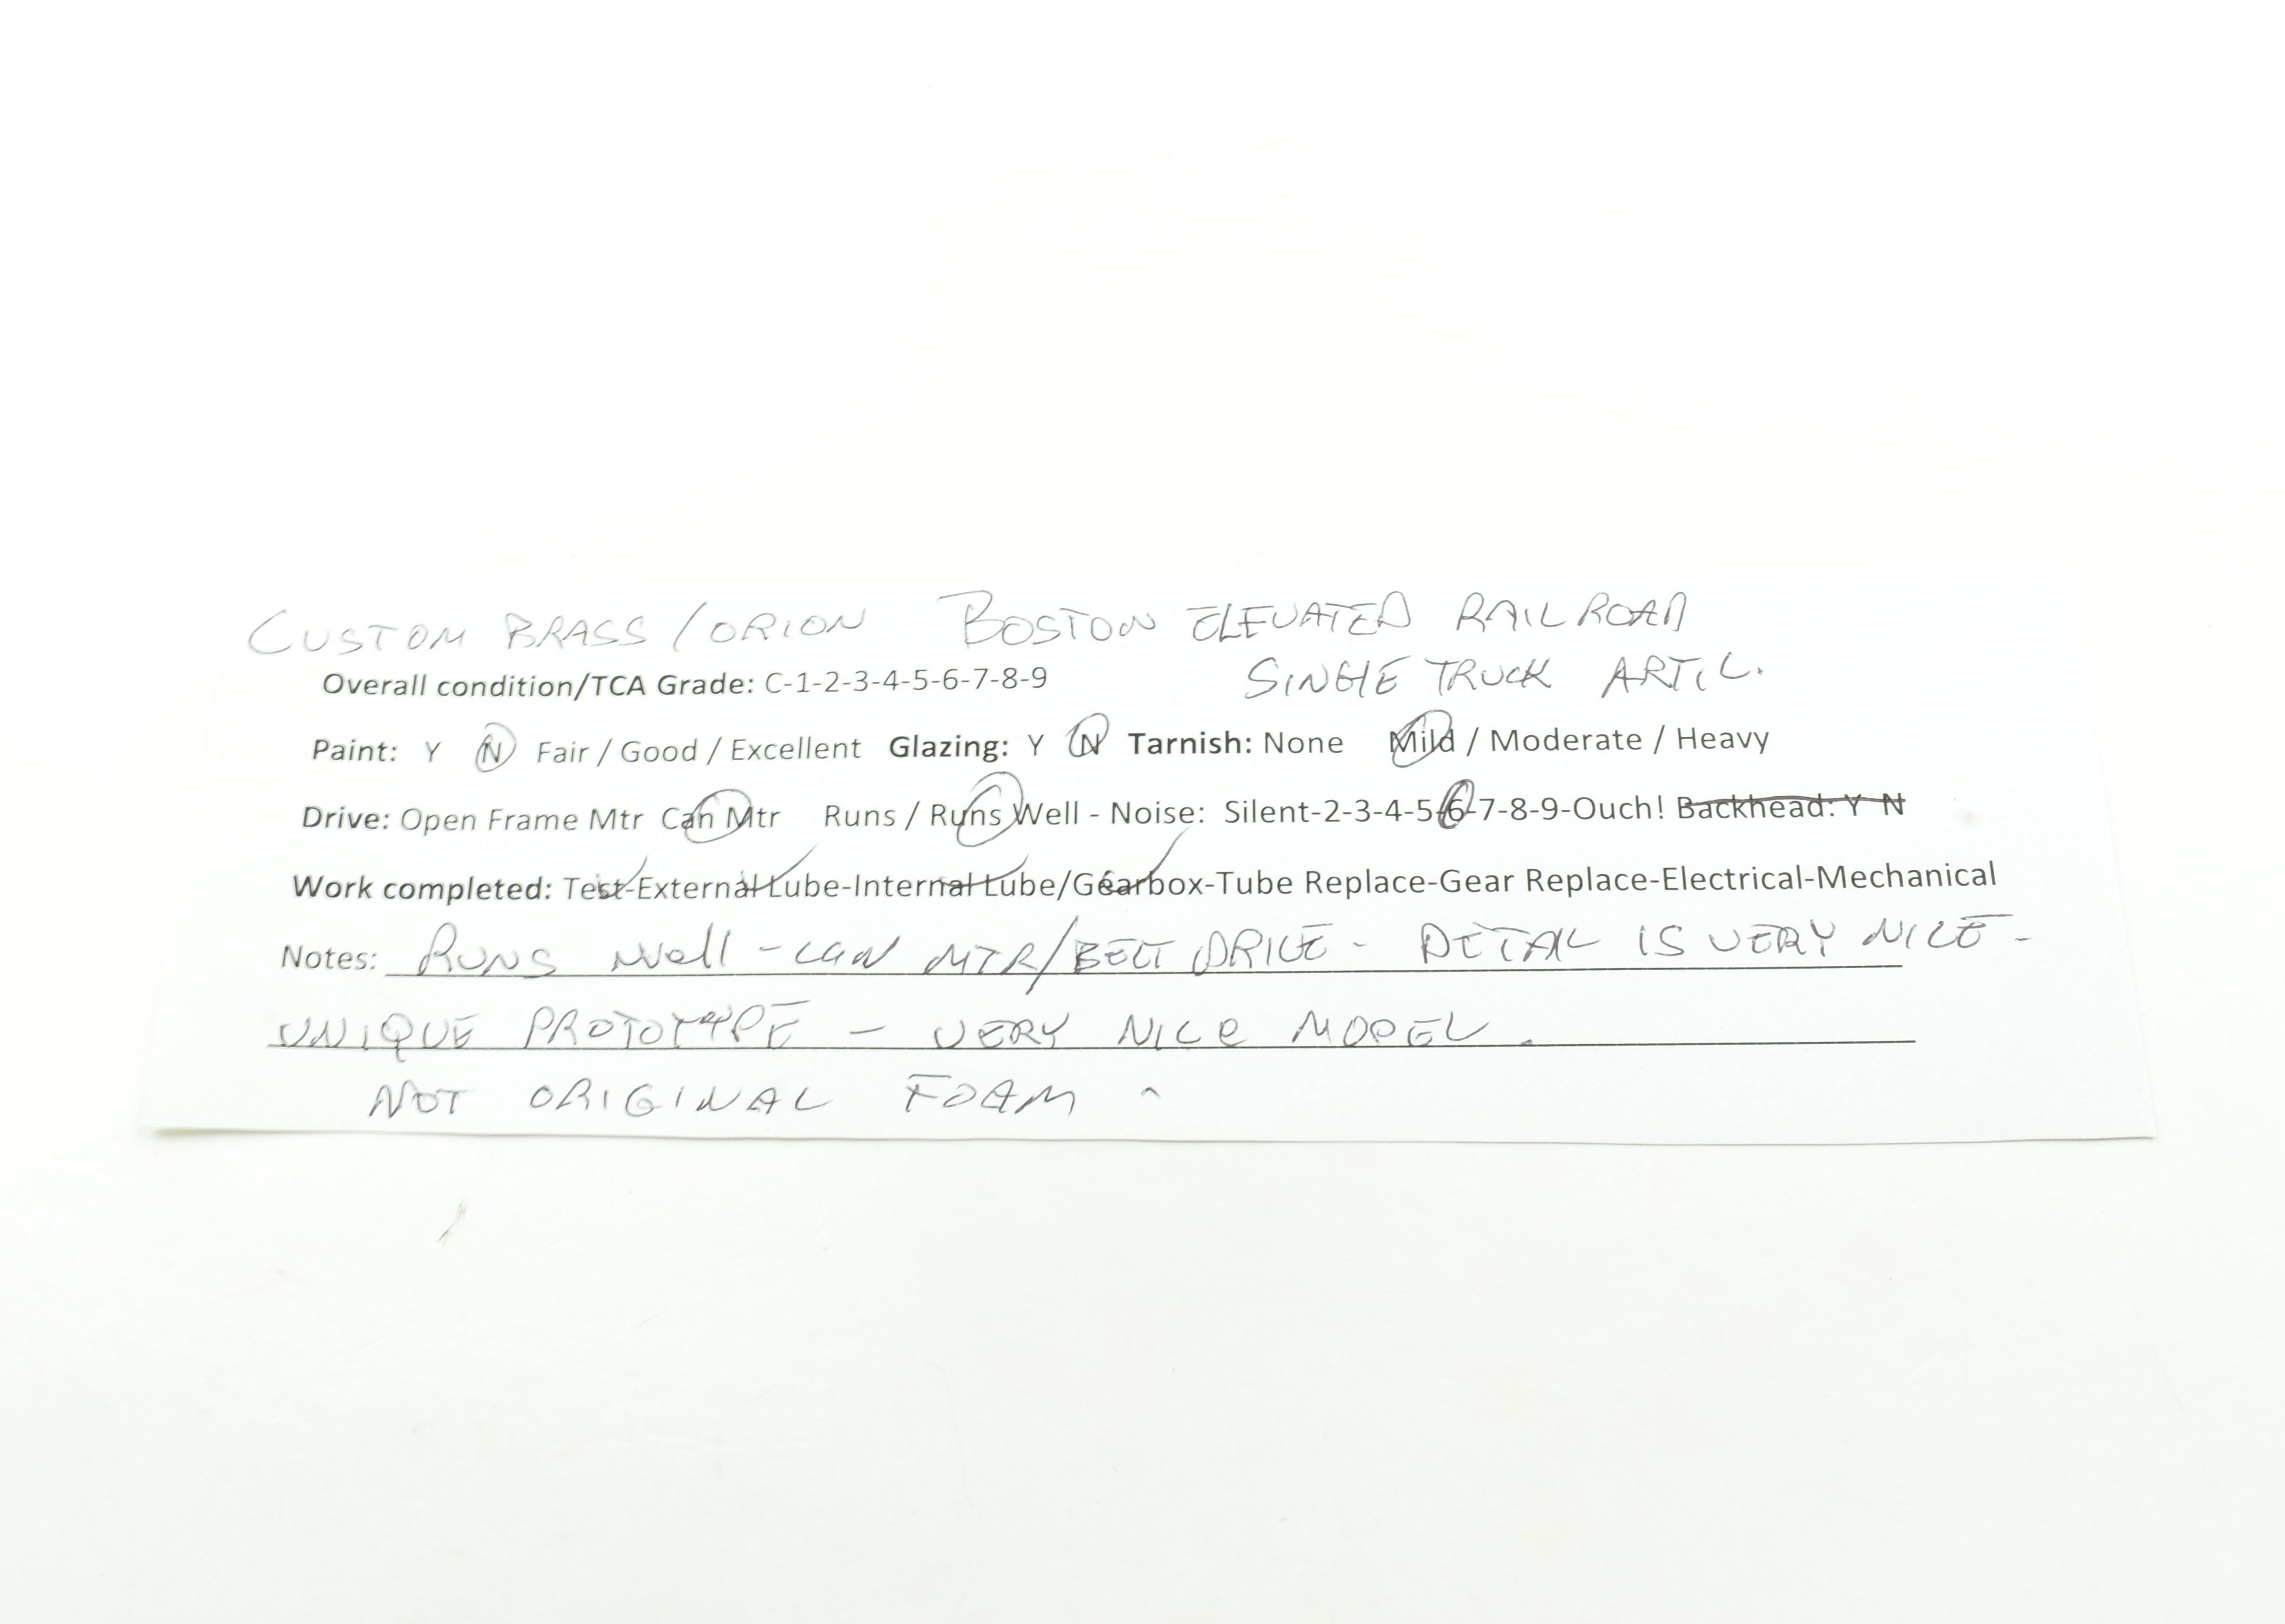 CUSTOM BRASS / ORION BOSTON ELEVATED RAILROAD
SINGLE TRUCK ARTIC.
Overall condition/TCA Grade: C-1-2-3-4-5-6-7-8-9
Paint: Y N Fair / Good / Excellent Glazing: Y N Tarnish: None Mild / Moderate / Heavy
Drive: Open Frame Mtr Can Mtr Runs / Runs Well - Noise: Silent-2-3-4-5-6-7-8-9-Ouch! Backhead: Y N
Work completed: Test-External Lube-Internal Lube/Gearbox-Tube Replace-Gear Replace-Electrical-Mechanical
Notes: RUNS Well - CAN MTR/BELT DRIVE - DETAIL IS VERY NICE -
UNIQUE PROTOTYPE - VERY NICE MODEL.
NOT ORIGINAL FOAM